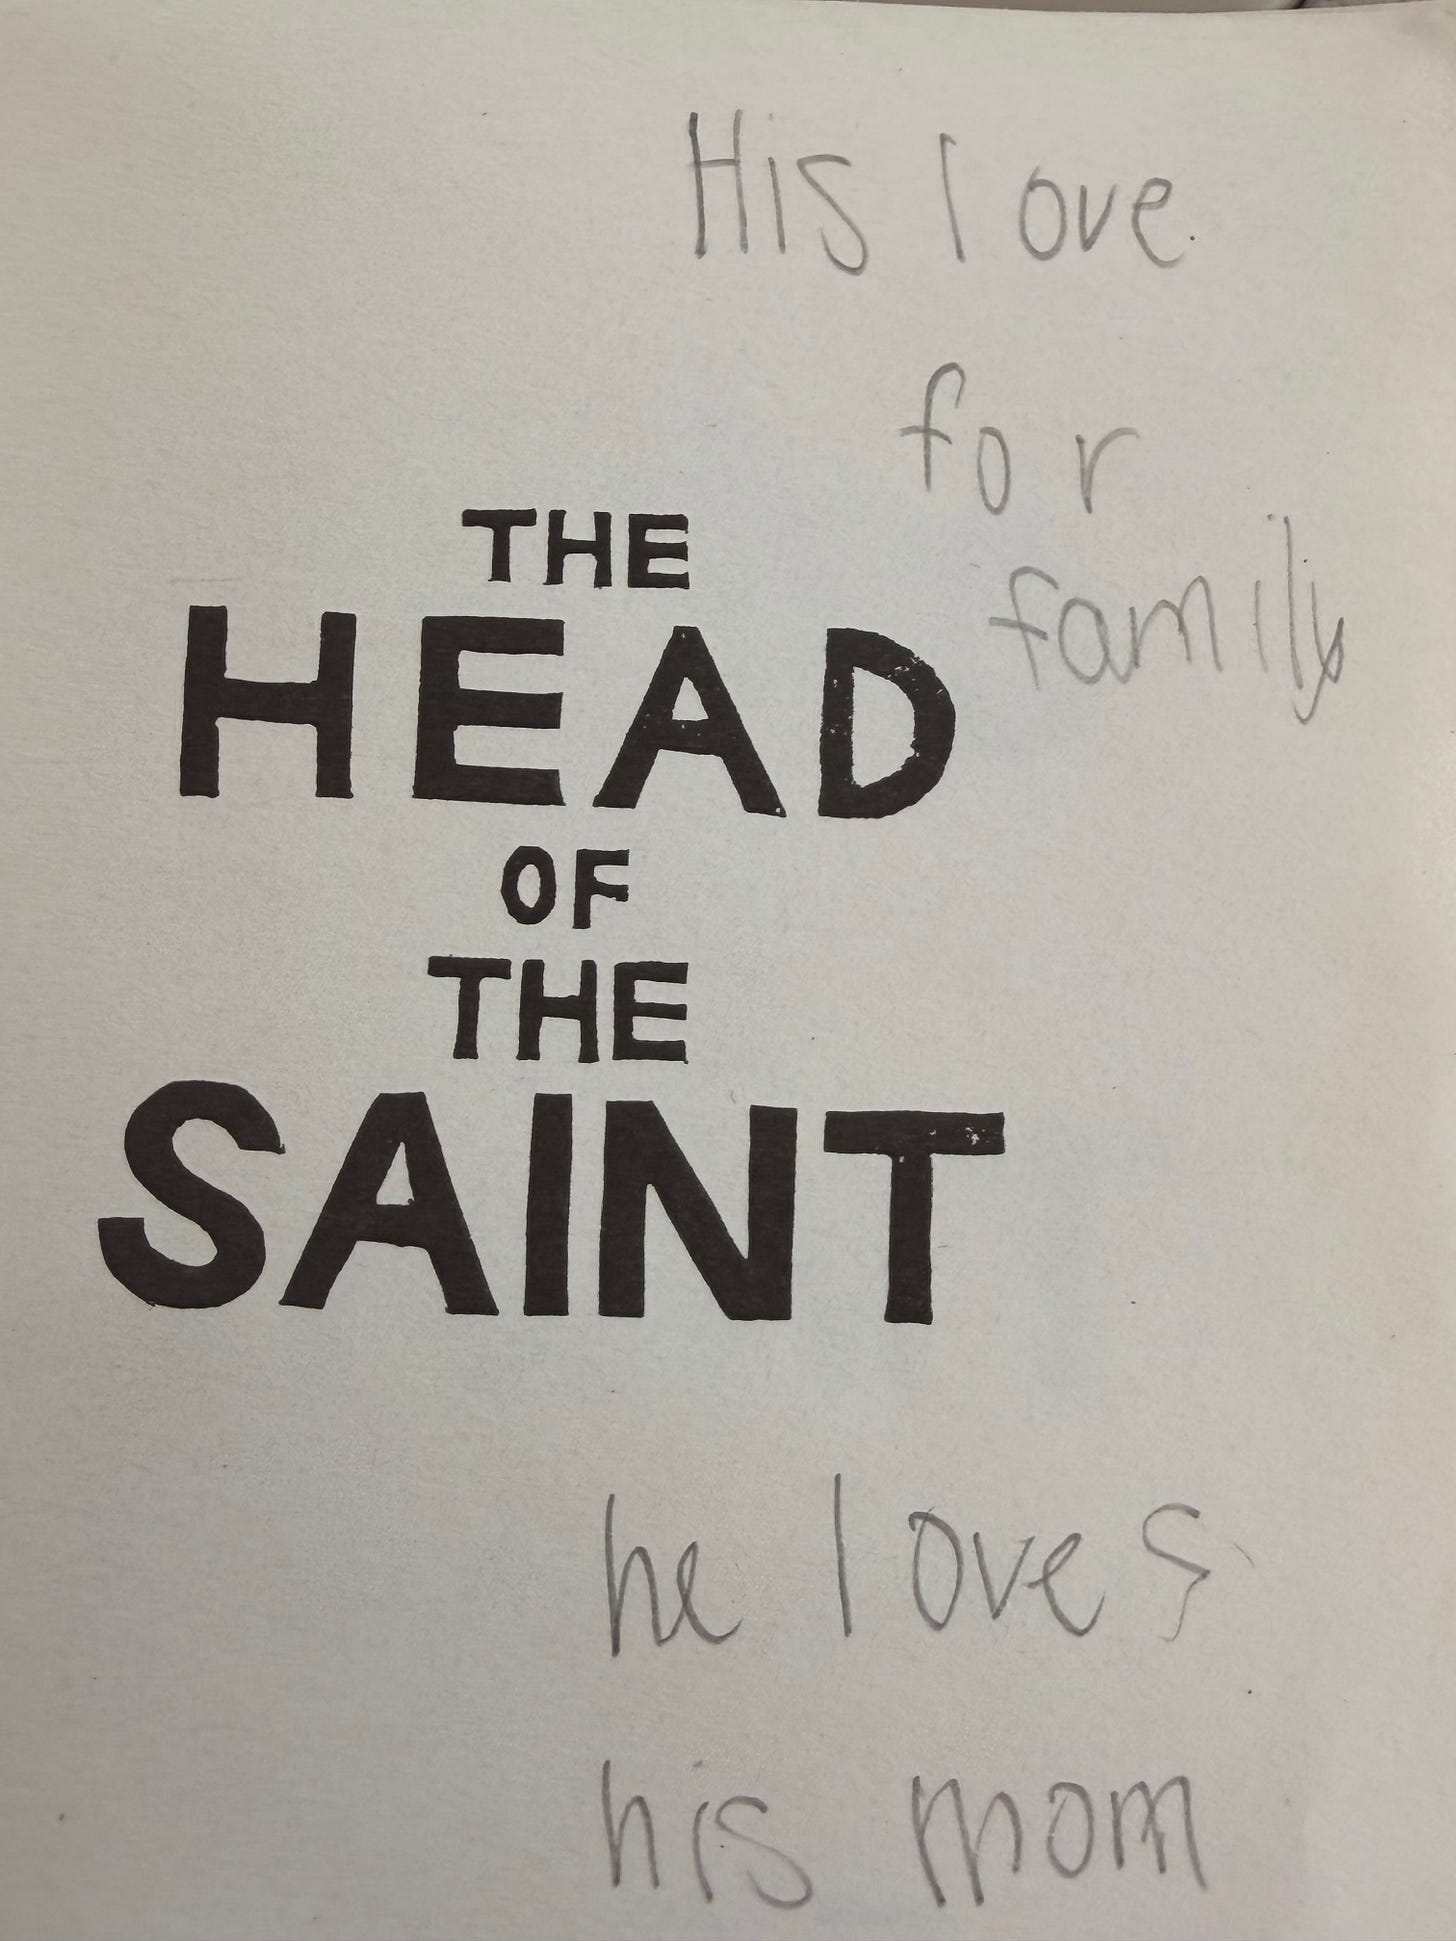 His love
for
family
THE
HEAD
OF
THE
SAINT
he loves
his mom